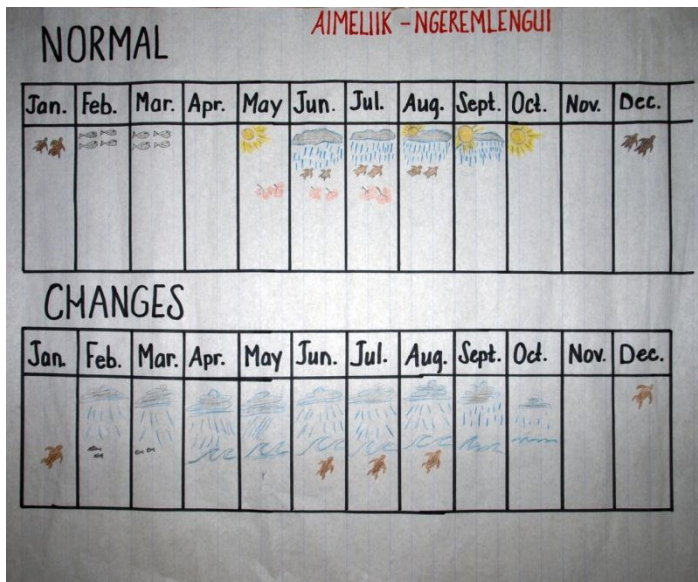 AIMELIIK - NGEREMLENGUI
NORMAL
Jan. Feb. Mar. Apr. May Jun. Jul. Aug. Sept. Oct. Nov. Dec.
CHANGES
Jan. Feb. Mar. Apr. May Jun. Jul. Aug. Sept. Oct. Nov. Dec.